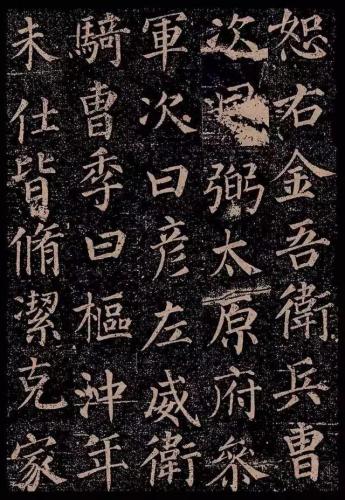 恕右金吾衛兵曹
次曰弼太原府叅
軍次曰彦左威衛
騎曺季曰樞沖年
未仕皆脩潔克家